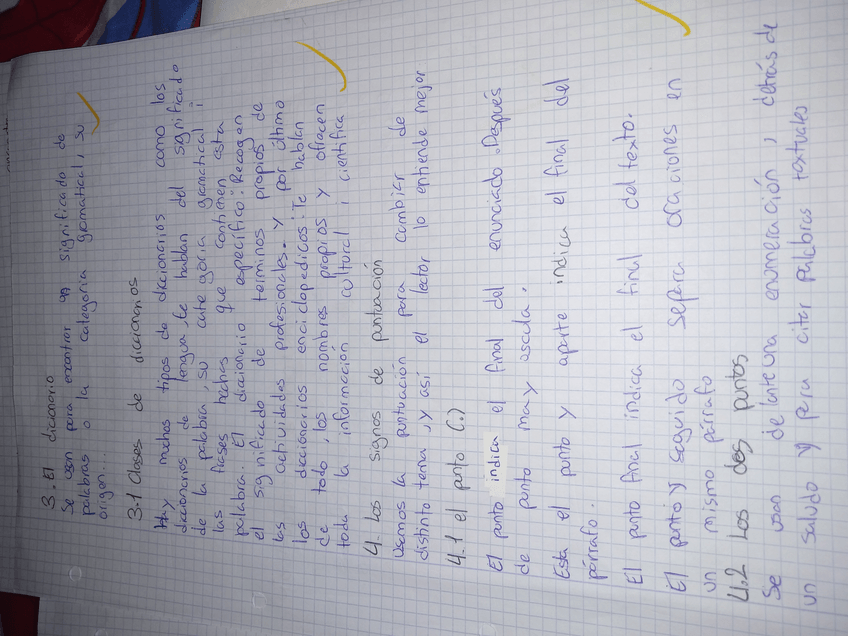 3. El diccionario
Se usan para encontrar significado de
palabras o la categoria gramatical, su
origen...
3.1 Clases de diccionarios
Hay muchos tipos de diccionarios como los
diccionarios de lengua, te hablan del significado
de la palabra, su categoria gramatical i
las frases hechas que contienen esta
palabra. El diccionario específico: Recogen
el significado de terminos propios de
las actividades profesionales. Y por último
los diccionarios enciclopedicos: Te hablan
de todo, los nombres propios y ofrecen
toda la información cultural i científica
4. Los signos de puntuación
Usamos la puntuación para cambiar de
distinto tema, y así el lector lo entiende mejor
4.1 el punto (.)
El punto indica el final del enunciado. Después
de punto mayuscula.
Esta el punto y aparte indica el final del
párrafo.
El punto final indica el final del texto.
El punto y seguido separa oraciones en
un mismo párrafo
4.2 Los dos puntos
Se usan delante una enumeración, detrás de
un saludo y para citar palabras textuales